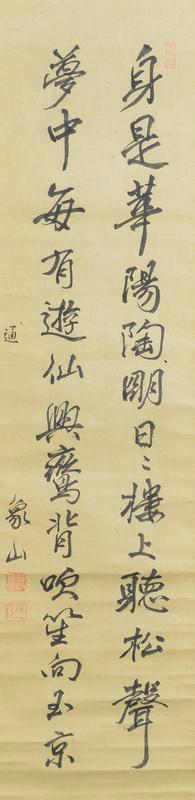 身是華陽陶明日〻樓上聽松聲
夢中每有遊仙興鸞背吹笙向玉京
通
象山